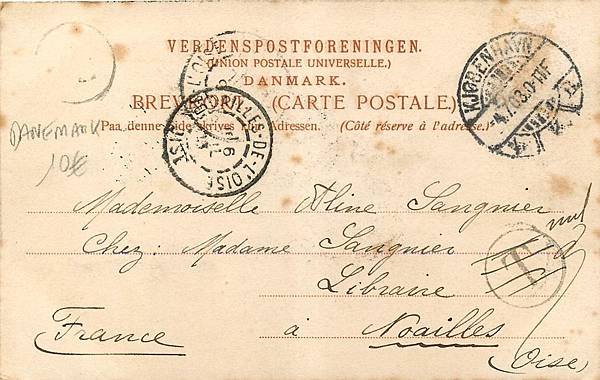 VERDENSPOSTFORENINGEN.
(UNION POSTALE UNIVERSELLE.)
DANMARK.
BREVKORT. (CARTE POSTALE.)
Paa denne Side skrives kun Adressen. (Côté réservé à l'adresse.)
KJØBENHAVN
VILLE-DE-L'OISE
DANEMARK
10€
Mademoiselle Aline Sangnier
Chez: Madame Sangnier
Libraire
à Noailles
France
(Oise)
nul
T